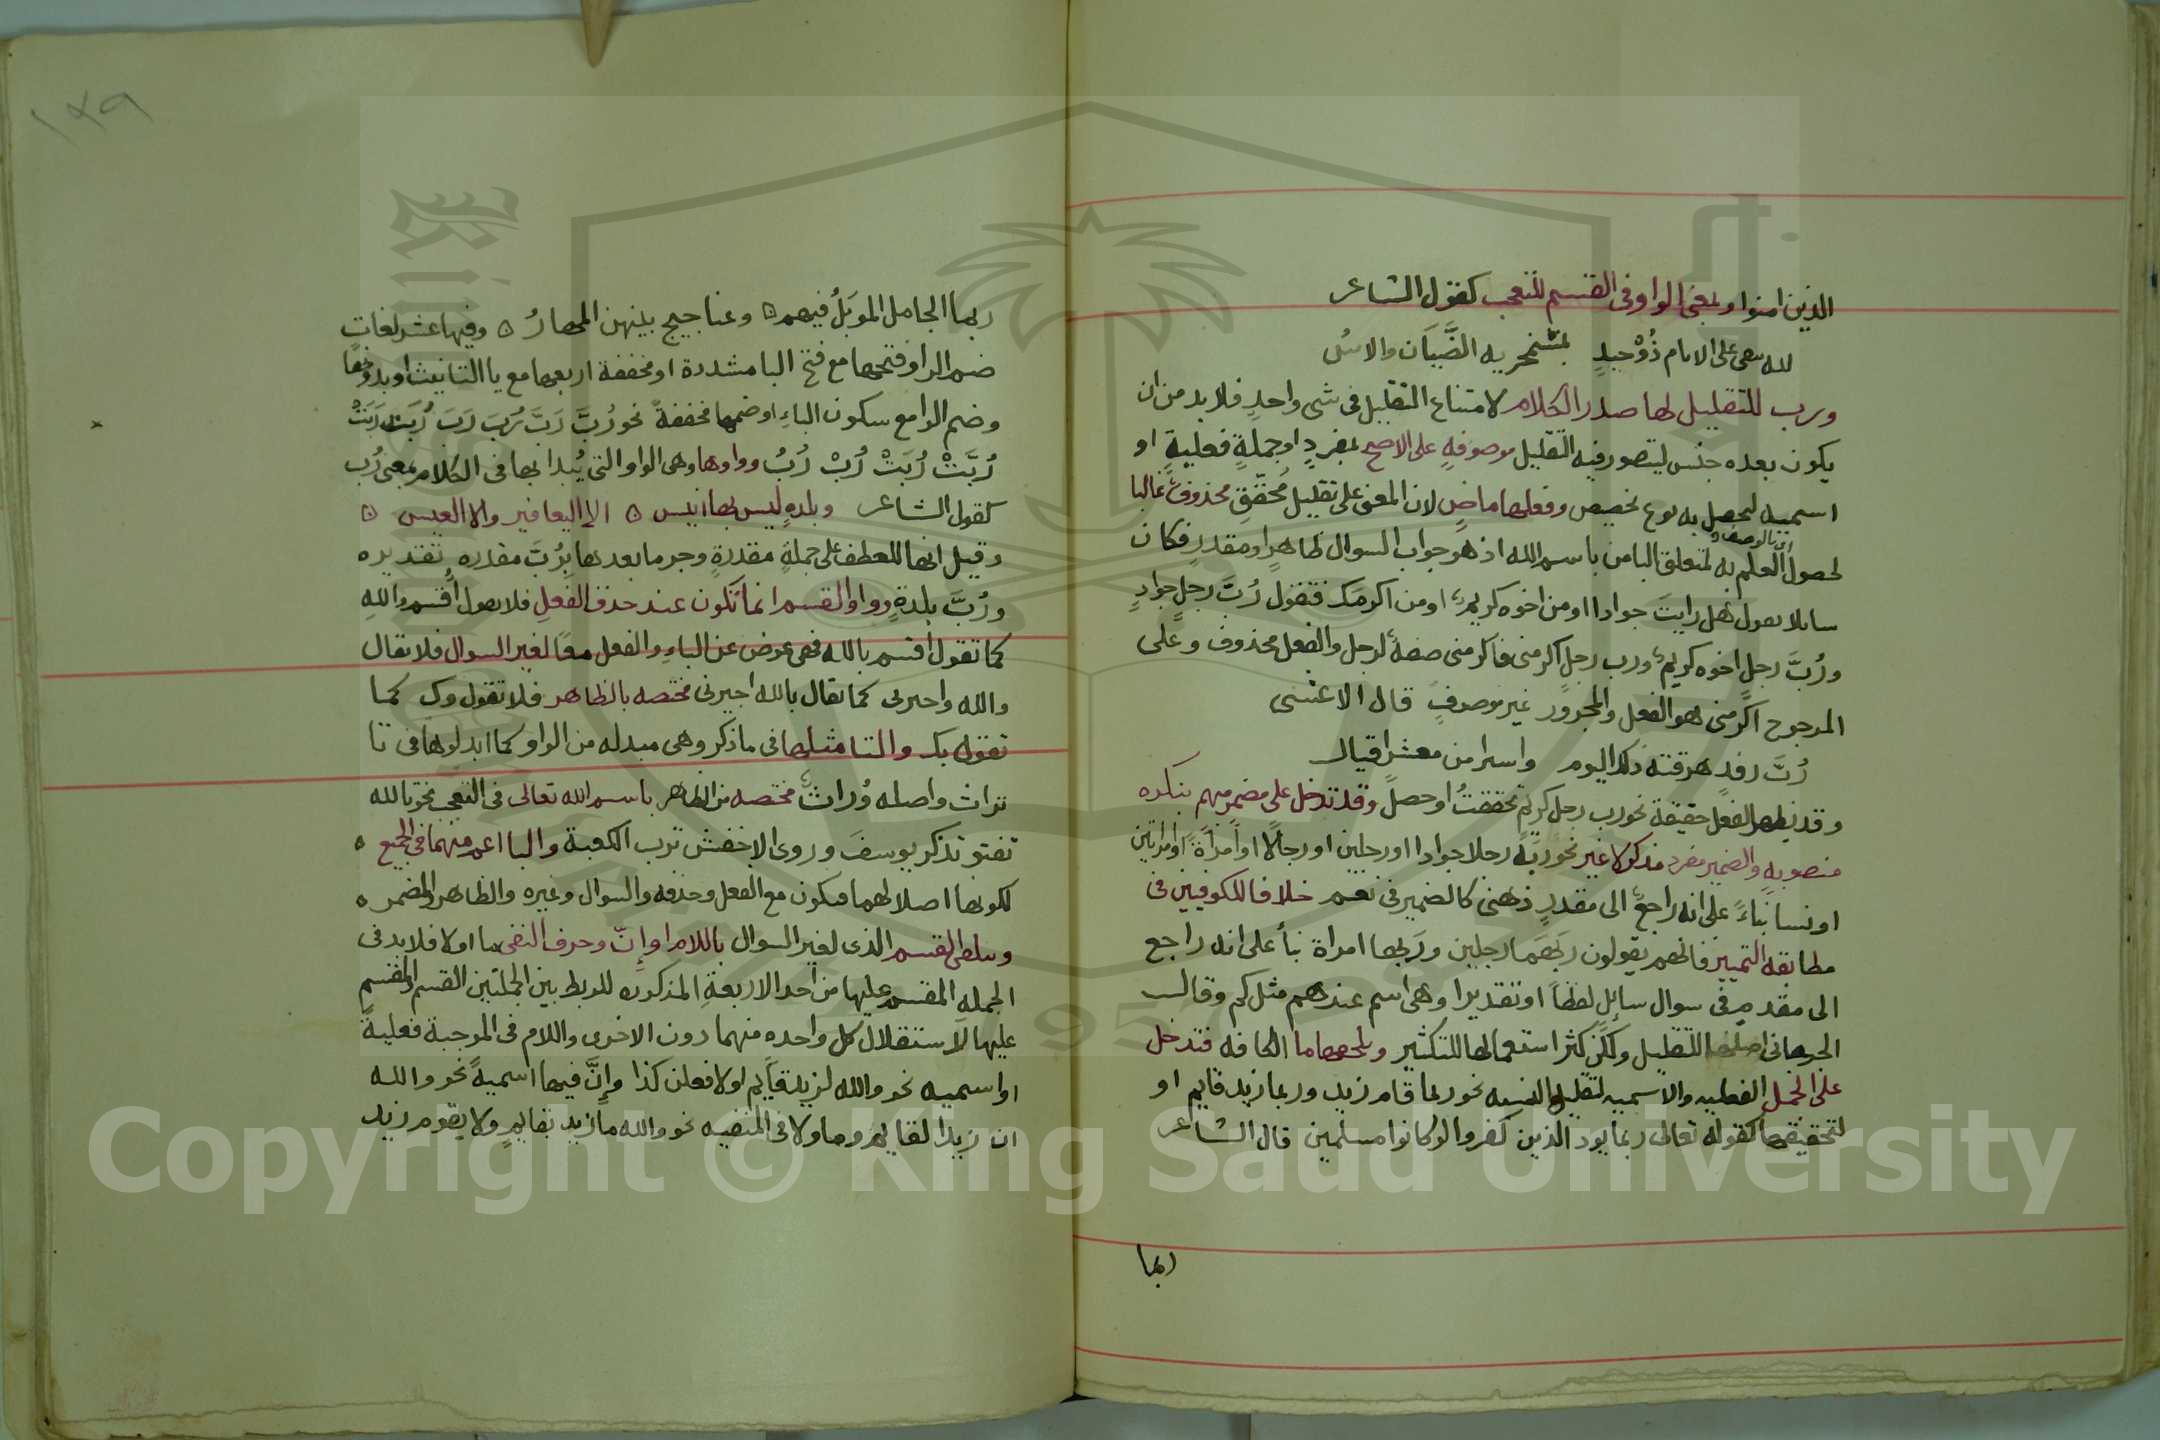 الذين امنوا وبمعنى الواو فى القسم للتعجب كقول الشاعر
لله يبقى على الايام ذُوْ حِيدٍ بمشمخر به الضَّيَان والاسُ
ورب للتقليل لها صدر الكلام لامتناع التقليل فى شى واحدٍ فلا بد من ان
يكون بعده جنس ليتصور فيه التقليل موصوفهٍ على الاصح بمفردٍ او جملةٍ فعليةٍ او
اسميه ليحصل به نوع تخصيص وفعلها ماضٍ لان المعنى على تقليل مُحقّقٍ محذوفٌ غالبا
لحصول العلم به لمتعلق البا من باسم الله اذ هو جواب السوال ظاهرٍ او مقدرٍ فكان
سايلا يقول هل رايتَ جوادا او من اخوه كريمٌ او من اكرمك فتقول رُبَّ رجلٍ جوادٍ
ورُبَّ رجلٍ اخوه كريمٌ ورب رجلٍ اكرمنى فاكرمنى صفةٌ لرجل والفعل محذوف وعلى
المرجوح اكرمنى هو الفعل والمجرور غير موصوفٍ قال الاعشى
رُبَّ رفدٍ هرقته ذلك اليوم واسرا من معشر اقيال
وقد يظهر الفعل حقيقة نحو رب رجل كريم تحققتُ او حصل وقد تدخل على مضمرٍ مبهم بنكره
منصوبهٍ والضمير مفرد مذكر لا غير نحو ربَّهُ رجلا جوادا او رجلين او رجالًا او امراةً او امراتين
او نسا بناءً على انه راجعٌ الى مقدرٍ ذهنىٍ كالضمير فى نعم خلافا للكوفيين فى
مطابقه التمييز فانهم يقولون ربهما رجلين وربها امراة بنأ على انه راجع
الى مقدمٍ فى سوال سايل لفظاً او تقديرا وهى اسم عندهم مثل كم وقالـ
الجرجانى اصلها للتقليل ولكن كثر استعمالها للتكثير ويلحقها ما الكافه فتدخل
على الجمل الفعليه والاسميه لتقليل النسبه نحو ربما قام زيد وربما زيد قايم او
لتحقيقها كقوله تعالى ربما يود الذين كفروا لو كانوا مسلمين قال الشاعر
ربما
١٢٩
ربما الجامل الموبّلُ فيهم وعناجيج بينهن المهارُ وفيها عشر لغات
ضم الرا وفتحها مع فتح البا مشددة او مخففة اربعها مع يا التانيث او بدونها
وضم الرا مع سكون الباءِ او ضمها مخففةً نحو رُبَّ رَبَّ رُبَ رَبَ رُبَتَ رَبَتْ
رُبَّتْ رُبَتْ رُبْ رُبُ وواوها وهى الواو التى يُبدا بها فى الكلام بمعنى رُب
كقول الشاعر وبلدهٍ ليس بها انيس الا اليعافير والا العيس
وقيل انها للعطف على جملةٍ مقدرةٍ وجر ما بعدها بِرُبَّ مقدره تقديره
ورُبَّ بلدةٍ وواو القسم انما تكون عند حذف الفعلِ فلا يقول أُقسم واللهِ
كما تقول اقسم بالله فهى عوض عن الباءِ والفعل معًا لغير السوال فلا تقال
والله واخبرنى كما يقال بالله اخبرنى مختصه بالظاهر فلا تقول وك كما
تقول بك والتا مثلها فى ما ذكر وهى مبدله من الواو كما ابدلوها فى تا
تراث واصله وُراثٌ مختصه من الظاهر باسم الله تعالى فى التعجب نحو تالله
تفتو تذكر يوسفَ وروى الاخفش ترب الكعبة والبا اعم منهما فى الجميع
لكونها اصلا لهما فيكون مع الفعل وحذفه والسوال وغيره والظاهر والمضمر
ويتلقى القسم الذى لغير السوال باللام او اِنّ وحرف النفى ما او لا فلا بد فى
الجمله المقسم عليها من احد الاربعةِ المذكوره للربط بين الجملتين القسم والمقسم
عليها لاستقلال كل واحده منهما دون الاخرى واللام فى الموجبة فعليةً
او اسميه نحو والله لزيد قايم او لا فعلن كذا واِنَّ فيها اسميةً نحو والله
ان زيدا لقايم وما ولا فى المنفيه نحو والله ما زيد بقايمٍ ولا يقوم زيد
Copyright © King Saud University